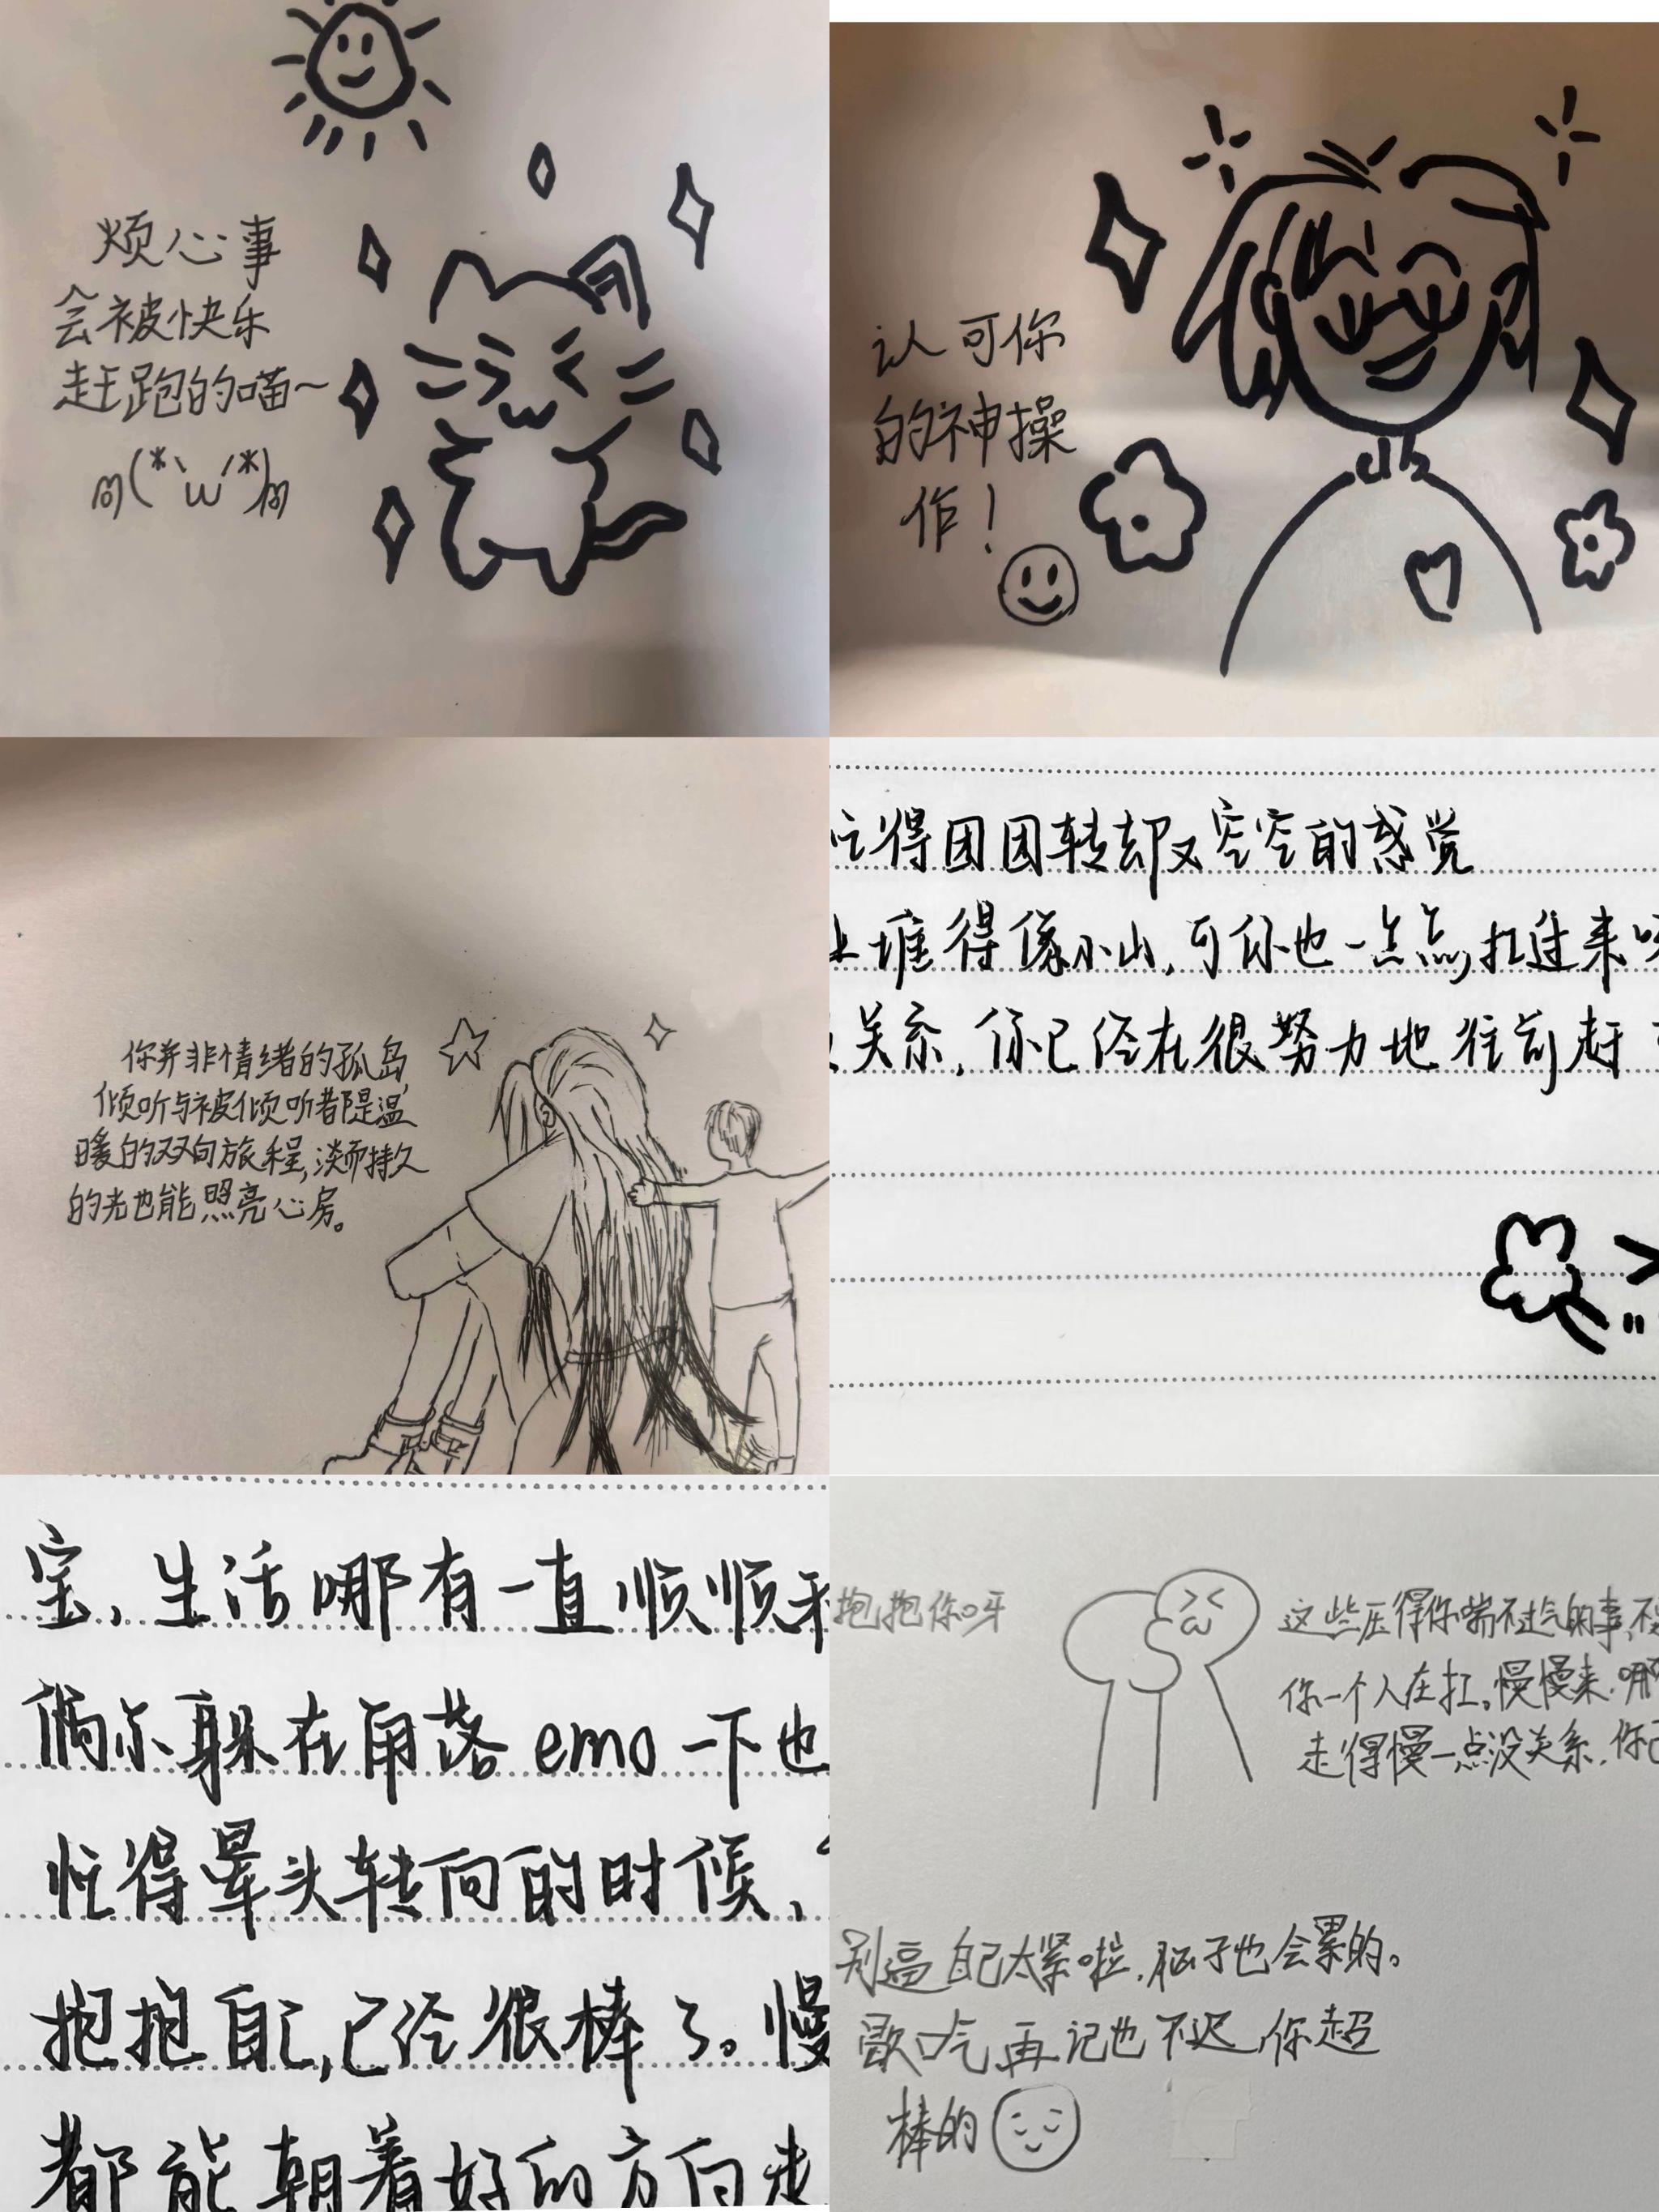 烦心事
会被快乐
赶跑的喵~
ฅ(*`ω´*)ฅ
认可你
的神操
作!
你并非情绪的孤岛,
倾听与被倾听者都是温
暖的双向旅程,淡而持久
的光也能照亮心房。
忙得团团转却又空空的感觉
堆得像小山,可你也一点点扛过来
关系,你已经在很努力地往前赶
宝,生活哪有一直顺顺利
偶尔躲在角落emo一下也
忙得晕头转向的时候,
抱抱自己,已经很棒了。慢
都能朝着好的方向走
抱抱你呀
这些压得你喘不过气的事,不
你一个人在扛。慢慢来,哪
走得慢一点没关系,你已
别逼自己太紧啦,脑子也会累的。
歇口气再记也不迟,你超
棒的